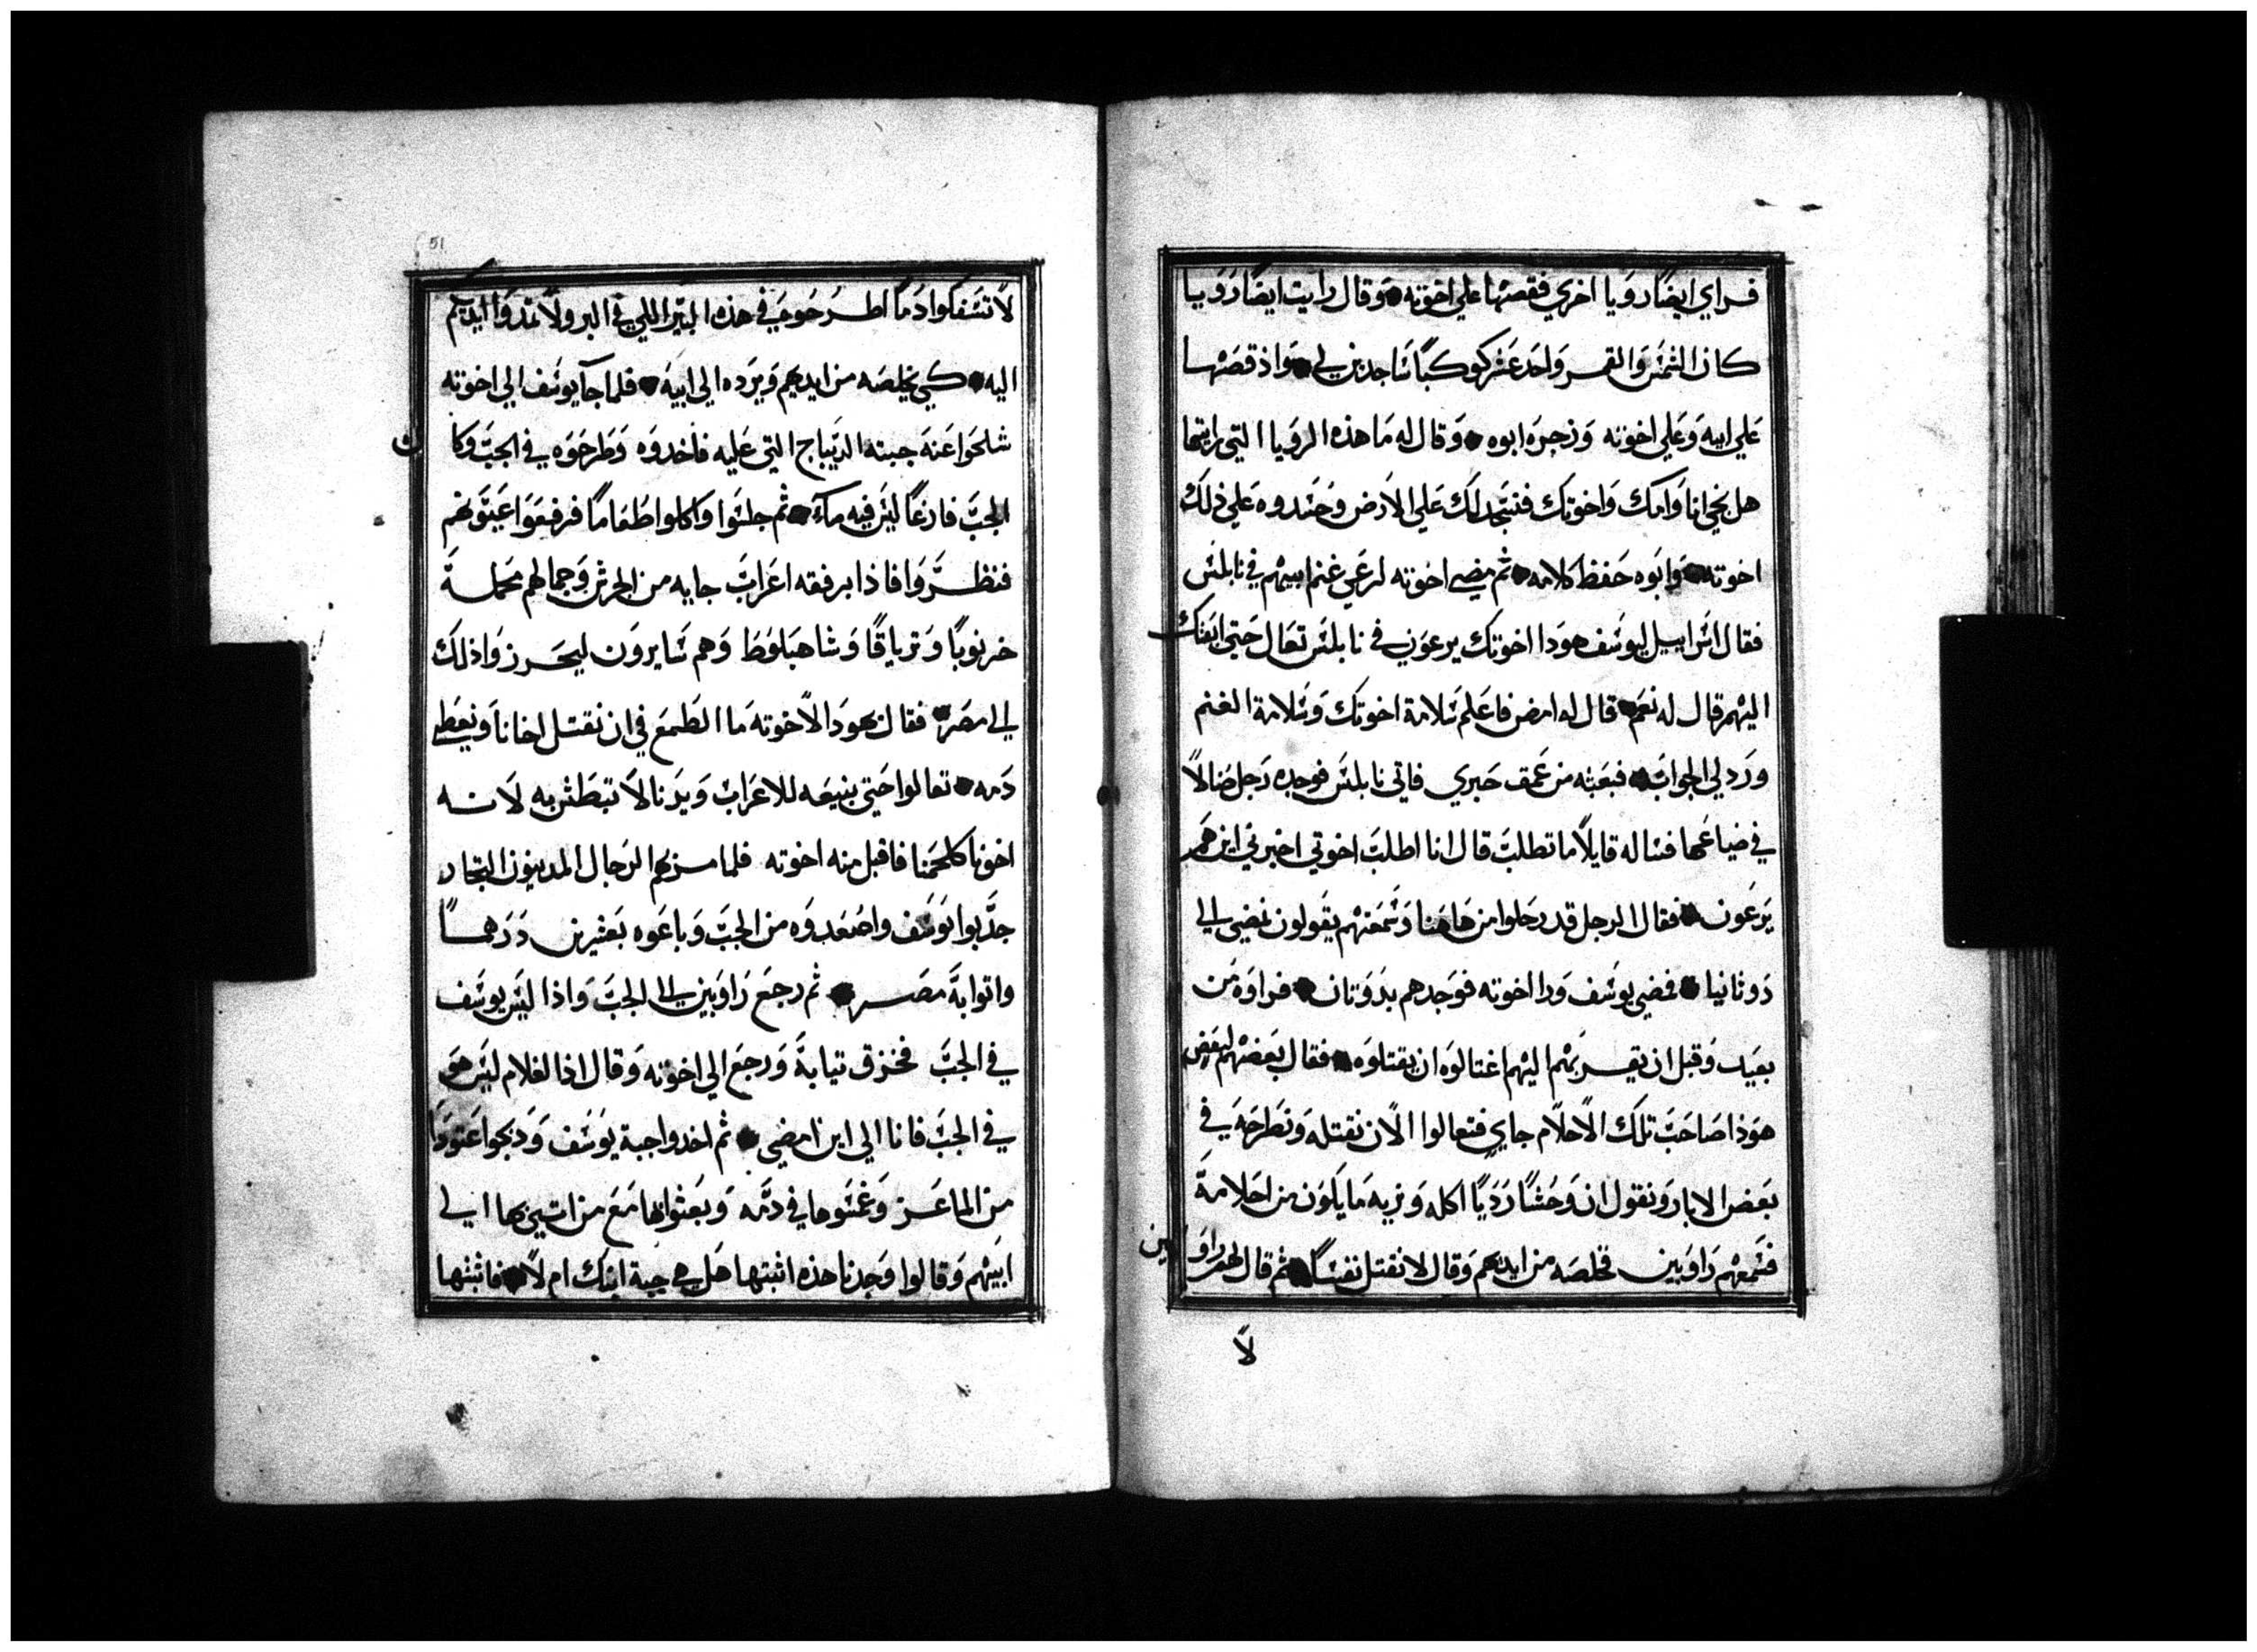 فراي ايضًا رويا اخري فقصها علي اخوته وقال رايت ايضًا رويا
كان الشمس والقمر واحد عشر كوكبًا ساجدين لي واذ قصها
علي ابيه وعلي اخوته وزجره ابوه وقال له ما هذه الرويا التي رايتها
هل نجي انا وامك واخوتك فنسجد لك علي الارض وحسدوه علي ذلك
اخوته وابوه حفظ كلامه ثم مضي اخوته لرعي غنم ابيهم في نابلس
فقال اسراييل ليوسف هودا اخوتك يرعون في نابلس تعال حتي ابعثك
اليهم قال له نعم قال له امض فاعلم سلامة اخوتك وسلامة الغنم
ورد لي الجواب فبعثه من عمق حبري فاتي نابلس فوجده رجل ضالاً
في ضياعها فساله قايلاً ما تطلب قال انا اطلب اخوتي اخبرني اين هم
يرعون فقال الرجل قد رحلوا من هاهنا وسمعتهم يقولون نمضي الي
دوثانيا فمضي يوسف ورا اخوته فوجدهم بدوتان فراوه من
بعيد وقبل ان يقربهم اليهم اغتالوه ان يقتلوه فقال بعضهم لبعض
هوذا صاحب تلك الاحلام جاي فتعالوا الان نقتله ونطرحه في
بعض الابار ونقول ان وحشًا رديًا اكله ونريه ما يكون من احلامة
فسمعهم راوبين فخلصه من ايديهم وقال لا نقتل نفسًا ثم قال لهم راوبين
لا
51
لا تسفكوا دمًا اطرحوه في هذه البير اللي في البر ولا تمدوا ايديكم
اليه كي يخلصه من ايديهم ويرده الي ابيه فلما جآ يوسف الي اخوته
شلحوا عنه جبته الديباج التي عليه فاخدوه وطرحوه في الجب وكان
الجب فارغًا ليس فيه مآء ثم جلسوا واكلوا طعامًا فرفعوا عيونهم
فنظروا فاذا برفقه اعراب جايه من الجرش وجمالهم محملة
خرنوبًا وترياقًا وشاهبلوط وهم سايرون ليحرزوا ذلك
الي مصر فقال يهودا لاخوته ما الطمع في ان نقتل اخانا ونغطي
دمه تعالوا حتي نبيعه للاعراب ويدنا لا تبطش به لانه
اخونا كلحمنا فاقبل منه اخوته فلما مر بهم الرجال المدينون التجار
جذبوا يوسف واصعدوه من الجب وباعوه بعشرين درهمًا
واتوا به مصر ثم رجع راوبين الي الجب واذا ليس يوسف
في الجب فخرق تيابة ورجع الي اخوته وقال اذا الغلام ليس هو
في الجب فانا الي اين امضي ثم اخدوا جبة يوسف ودبحوا عتودًا
من الماعز وغمسوها في دمه وبعثوا بها مع من اتي بها الي
ابيهم وقالوا وجدنا هذه اثبتها هل هي جبة ابنك ام لا فاثبتها